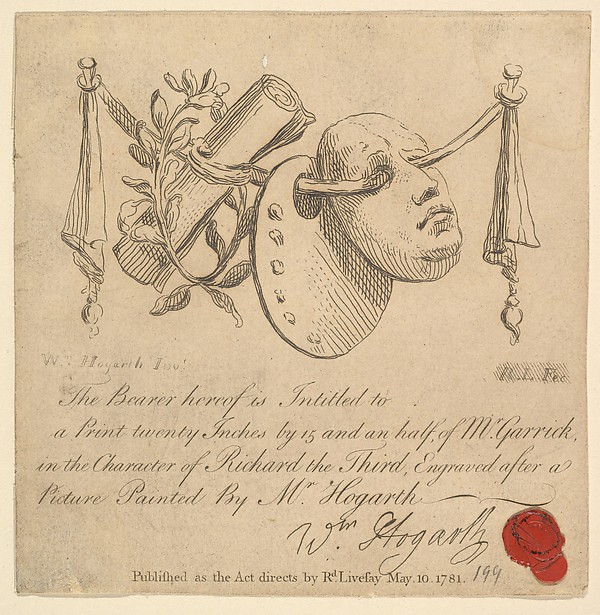 Wᵐ Hogarth Invᵗ
The Bearer hereof is Intitled to
a Print twenty Inches by 15 and an half, of Mʳ Garrick,
in the Character of Richard the Third, Engraved after a
Picture Painted By Mʳ Hogarth
Wᵐ Hogarth
Publiſhed as the Act directs by Rᵈ Liveſay May. 10. 1781.
199